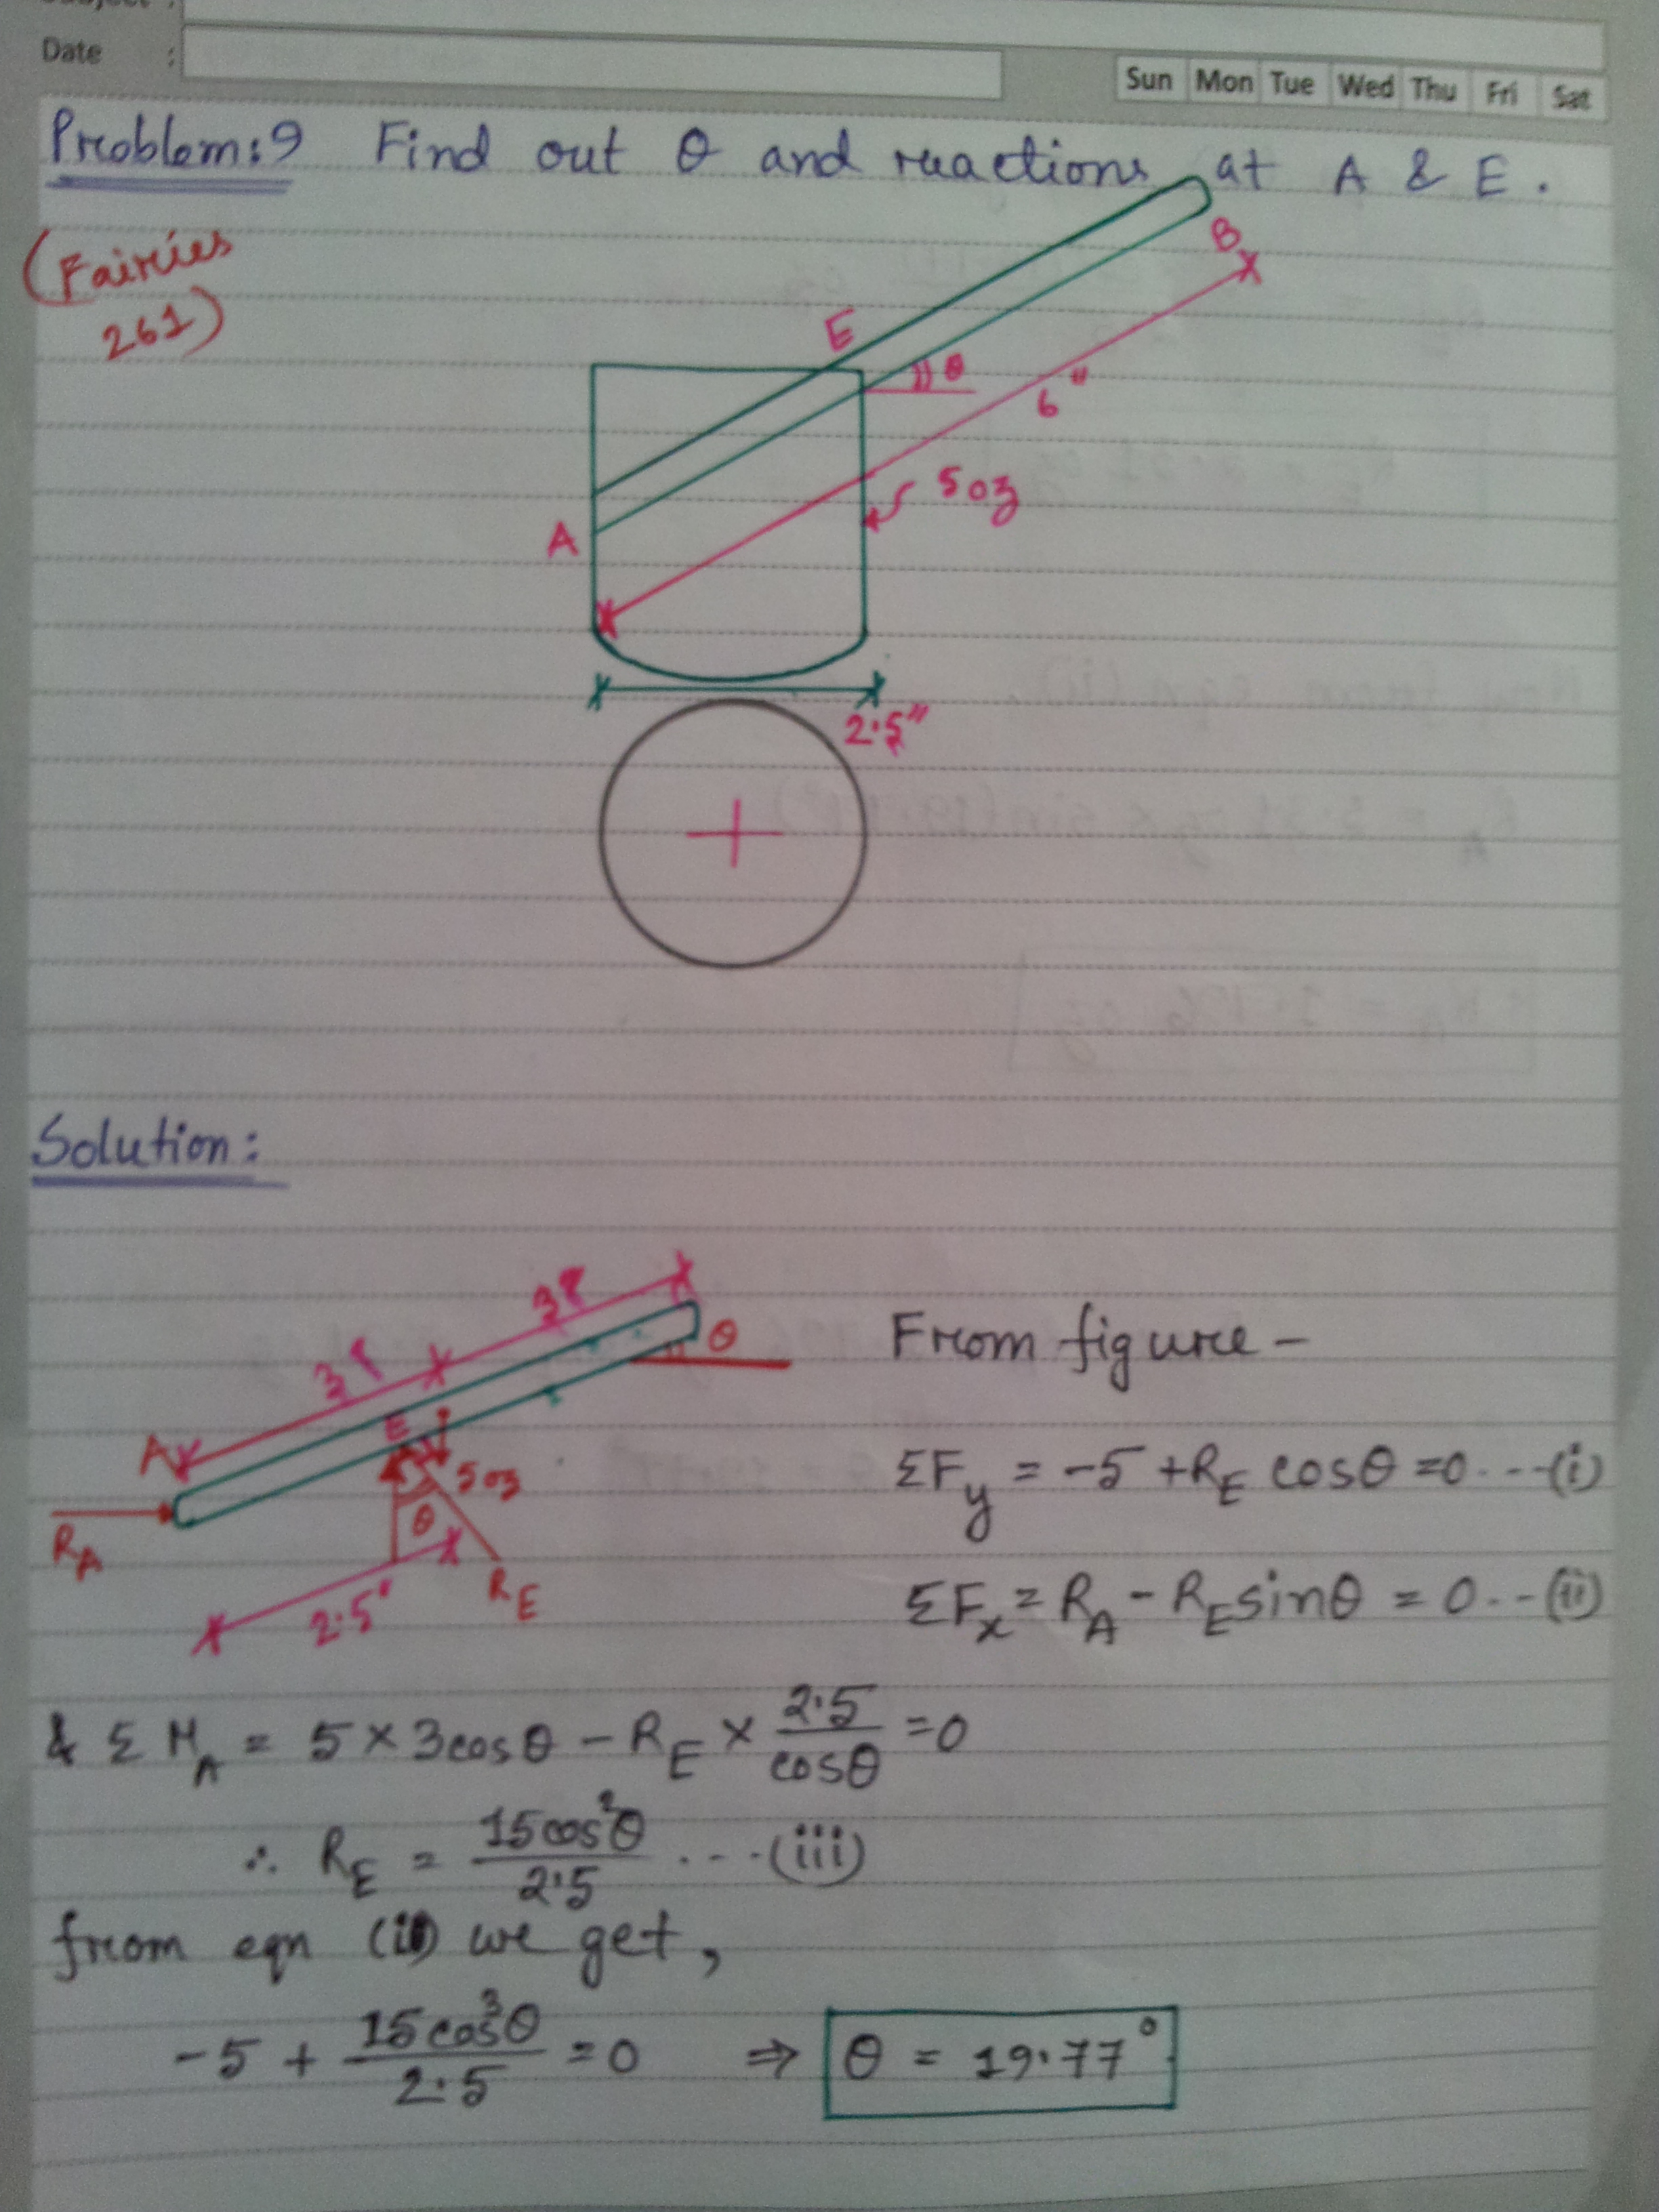 Subject :
Date :
Sun Mon Tue Wed Thu Fri Sat
Problem:9 Find out θ and reactions at A & E.
(Fairies
261)
B
E
θ
6"
5 oz
A
2.5"
Solution:
3"
3"
θ
A
E
5 oz
θ
R_A
R_E
2.5"
From figure –
ΣF_y = -5 + R_E cosθ = 0 ---(i)
ΣF_x = R_A - R_E sinθ = 0 --(ii)
& Σ M_A = 5 × 3cosθ - R_E × 2.5/cosθ = 0
∴ R_E = 15cos²θ/2.5 ---(iii)
from eqn (i) we get,
-5 + 15cos³θ/2.5 = 0 ⇒ θ = 19.77°